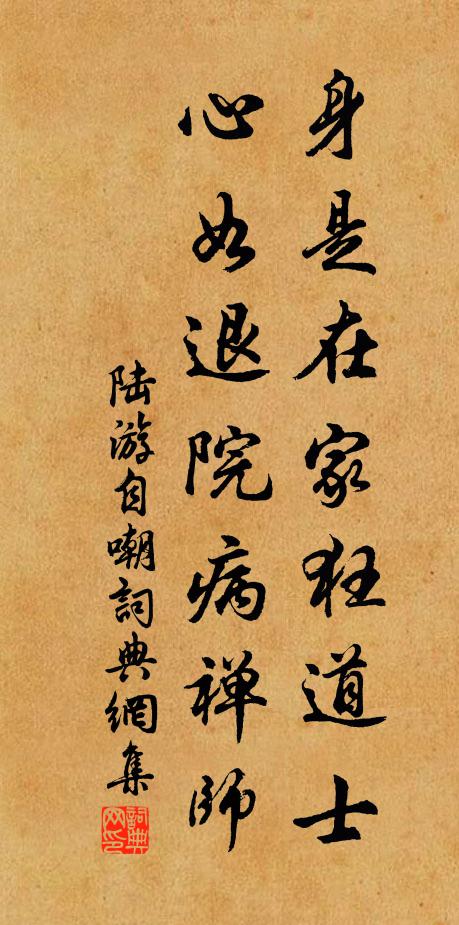 身是在家狂道士
心如退院病禅師
陆游自嘲詞典網集
詞典网印